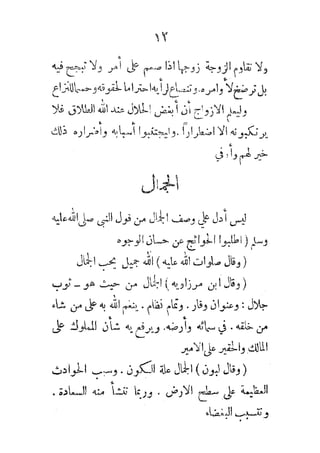 ١٢
ولا تقاوم الزوجة زوجها اذا صمم على أمر ولا تبجح فيه
بل ترضخ لأوامره. وتنصاع لرأيه احتراما لحقوقه وحسما للنزاع
وليعلم الازواج أن أبغض الحلال عند الله الطلاق فلا
يرتكبونه الا اضطرارا. وليجتنبوا أسبابه وأضراره ذلك
خير لهم وأرقى
الجمال
ليس أدل على وصف الجمال من قول النبي صلى الله عليه
وسلم ( اطلبوا الحوائج عن حسان الوجوه
( وقال صلوات الله عليه ) الله جميل يحب الجمال
( وقال ابن مرزاويه ) الجمال من حيث هو ـ ثوب
جلال : وعنوان وقار . وتمام نظام . ينعم الله به على من شاء
من خلقه . في سمائه وأرضه. ويرفع به شأن المملوك على
المالك والحقير على الامير
( وقال ليون ) الجمال علة السكون . وسبب الحوادث
العظيمة على سطح الارض . وربما تنشأ منه السعادة .
وتتسبب البغضاء